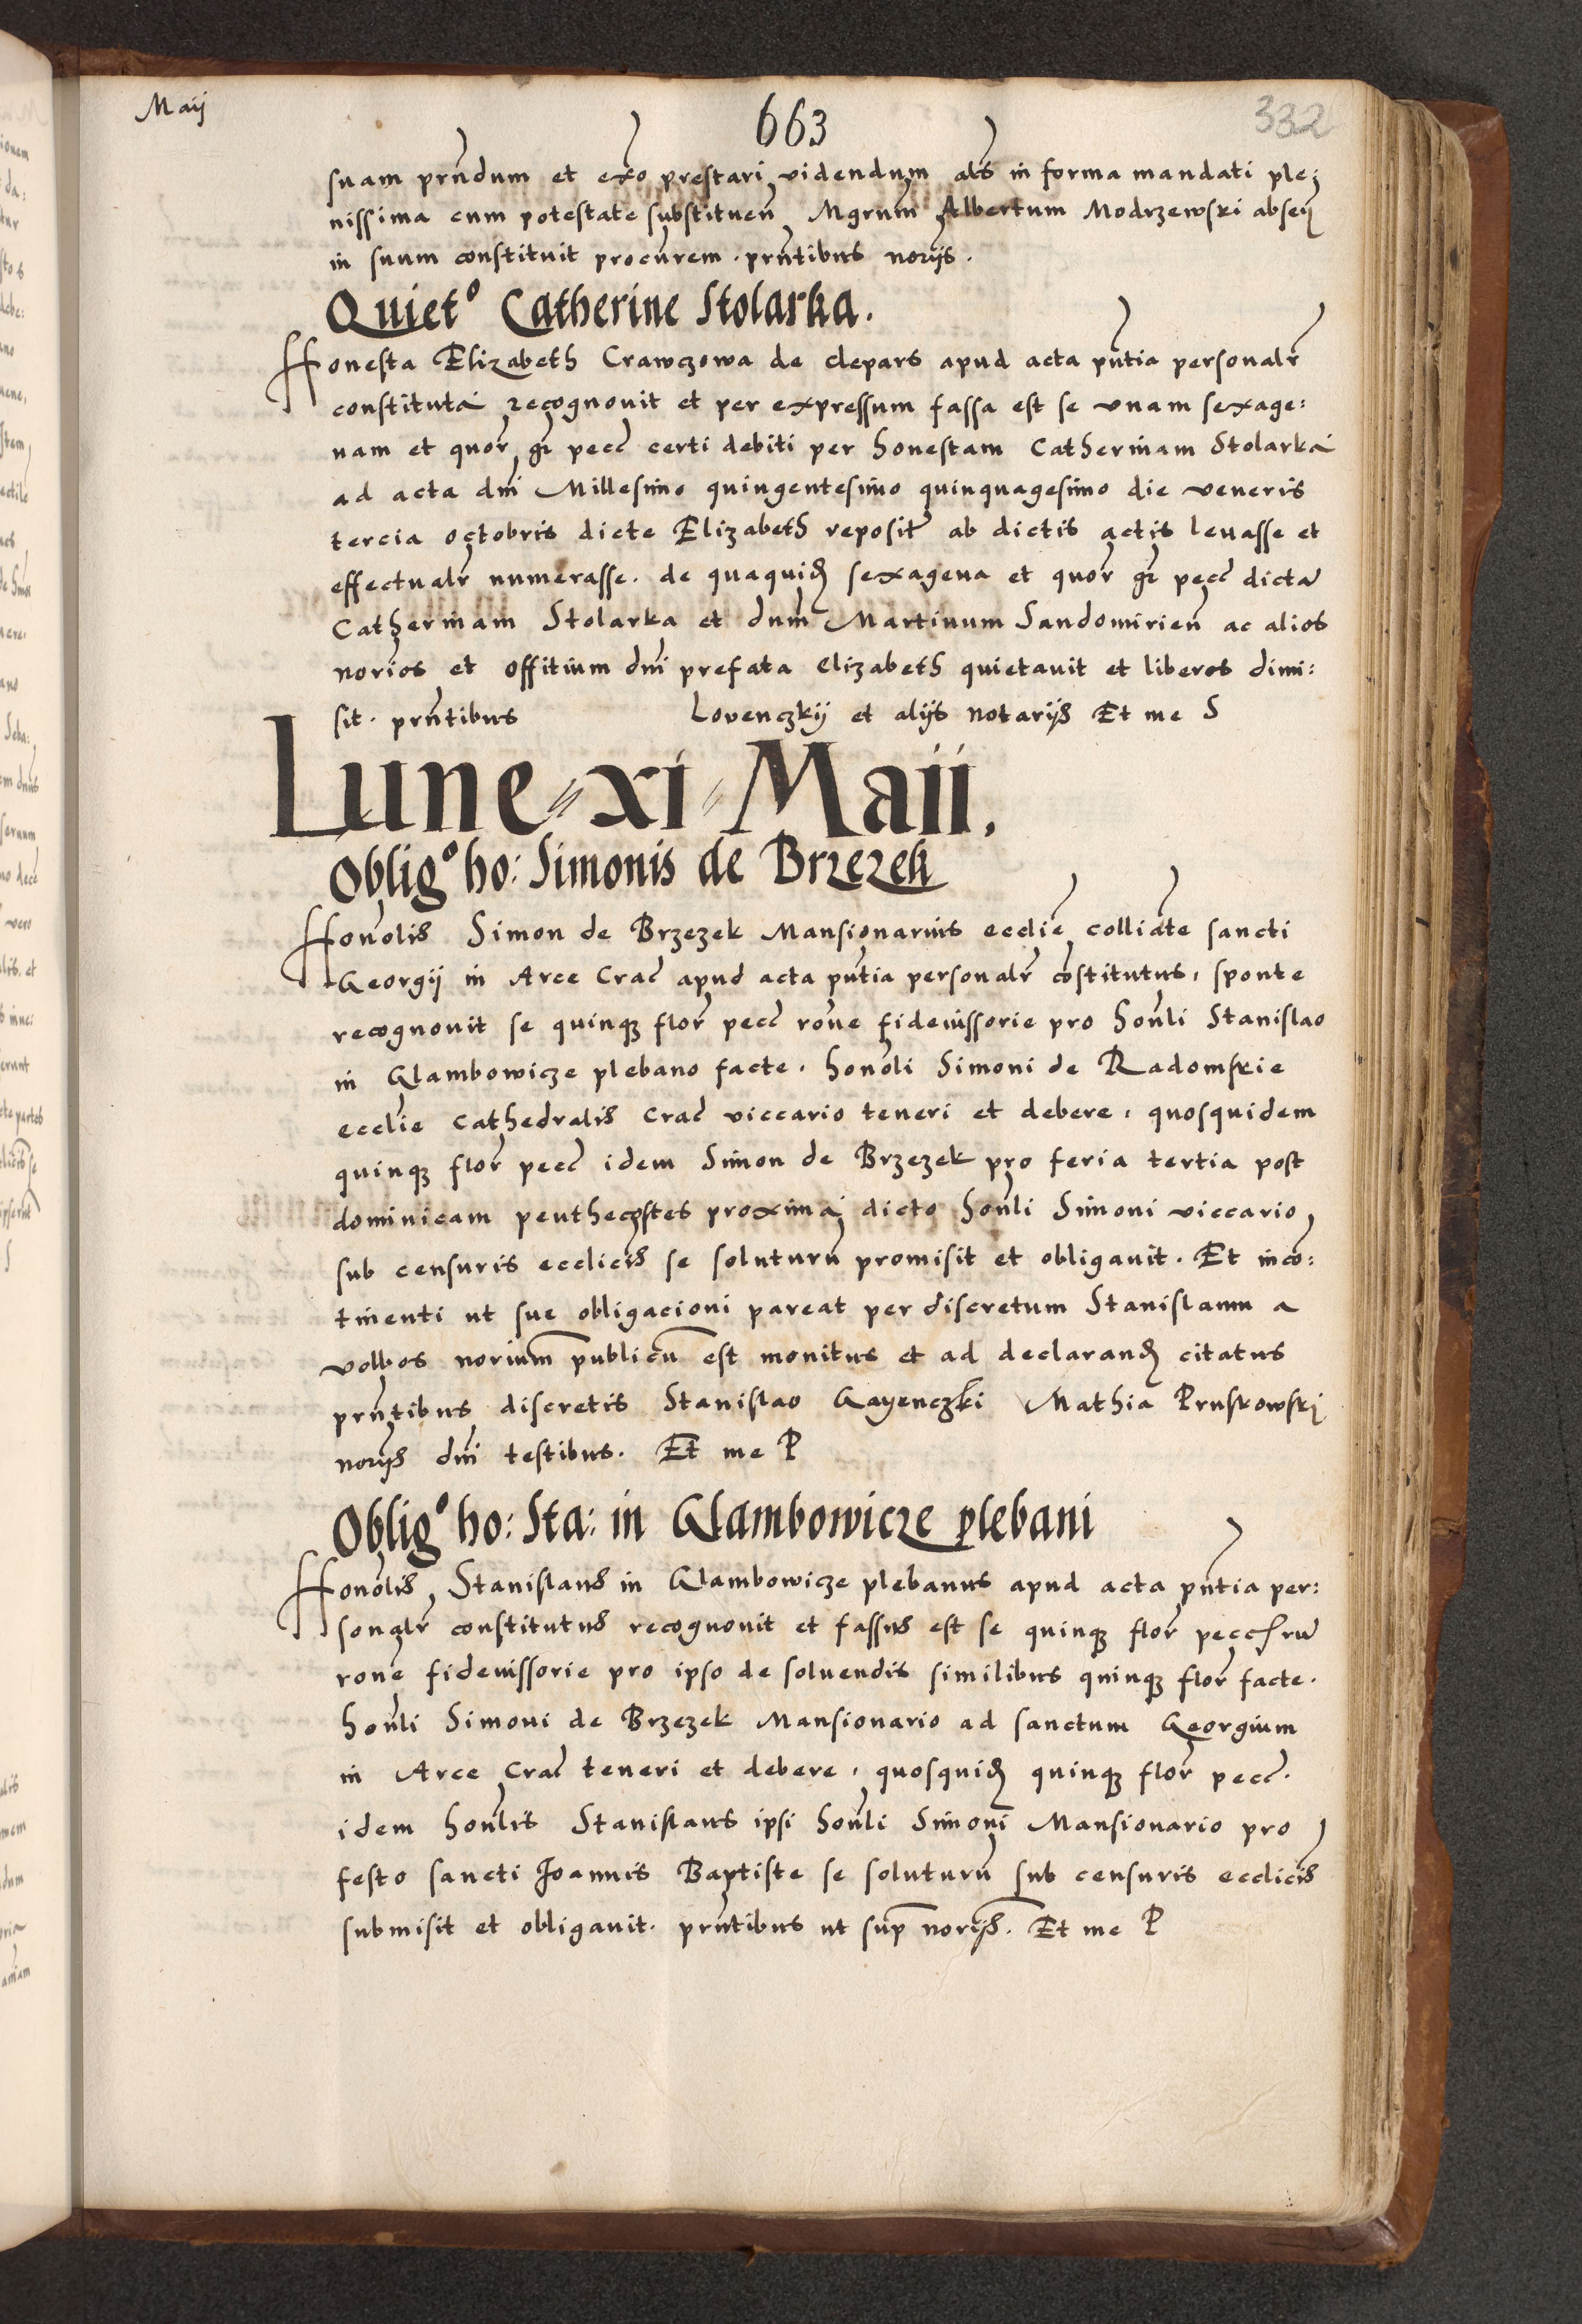 Maij
663
332
suam prñdum et exo prestari videndum als in forma mandati ple:
nissima cum potestate substituen Mgrum Albertum Modrzewski absen
in suum constituit procurem . prñtibus norijs .
Quietº Catherine Stolarka .
Honesta Elizabeth Crawczowa de clepars apud acta pñtia personalr
constituta recognouit et per expressum fassa est se vnam sexage:
nam et quor gr pecc certi debiti per honestam Catherinam Stolarka
ad acta dni Millesimo quingentesimo quinquagesimo die veneris
tercia octobris dicte Elizabeth reposit ab dictis actis leuasse et
effectualr numerasse . de quaquid sexagena et quor gr pecc dicta
Catherinam Stolarka et dnm Martinum Sandomirien ac alios
norios et offitium dni prefata Elizabeth quietauit et liberos dimi:
sit . prñtibus Lovenczkij et alijs notarijs Et me S
Lune xi Maii .
Obligº ho: Simonis de Brzezek
Honolis Simon de Brzezek Mansionarius ecclie colliate sancti
Georgij in Arce Crac apud acta pñtia personalr cõstitutus , sponte
recognouit se quinq flor pecc rone fideiussorie pro honli Stanislao
in Glambowicze plebano facte . honoli Simoni de Radomskie
ecclie Cathedralis Crac viccario teneri et debere , quosquidem
quinq flor pecc idem Simon de Brzezek pro feria tertia post
dominicam penthecostes proxima dicto honli Simoni viccario
sub censuris ecclicis se soluturu promisit et obligauit . Et inco:
tinenti ut sue obligacioni pareat per discretum Stanislaum a
volbos norium publicu est monitus et ad declarand citatus
prñtibus discretis Stanislao Gayenczki Mathia Pruskowski
norijs dni testibus . Et me P
Obligº ho: Sta: in Glambowicze plebani
Honolis Stanislaus in Glambowicze plebanus apud acta pñtia per:
sonalr constitutus recognouit et fassus est se quinq flor pecc
rone fideiussorie pro ipso de soluendis similibus quinq flor facte .
honli Simoni de Brzezek Mansionario ad sanctum Georgium
in Arce Crac teneri et debere , quosquid quinq flor pecc .
idem honlis Stanislaus ipsi honli Simoni Mansionario pro
festo sancti Joannis Baptiste se soluturu sub censuris ecclicis
submisit et obligauit . prñtibus ut sup norijs . Et me P